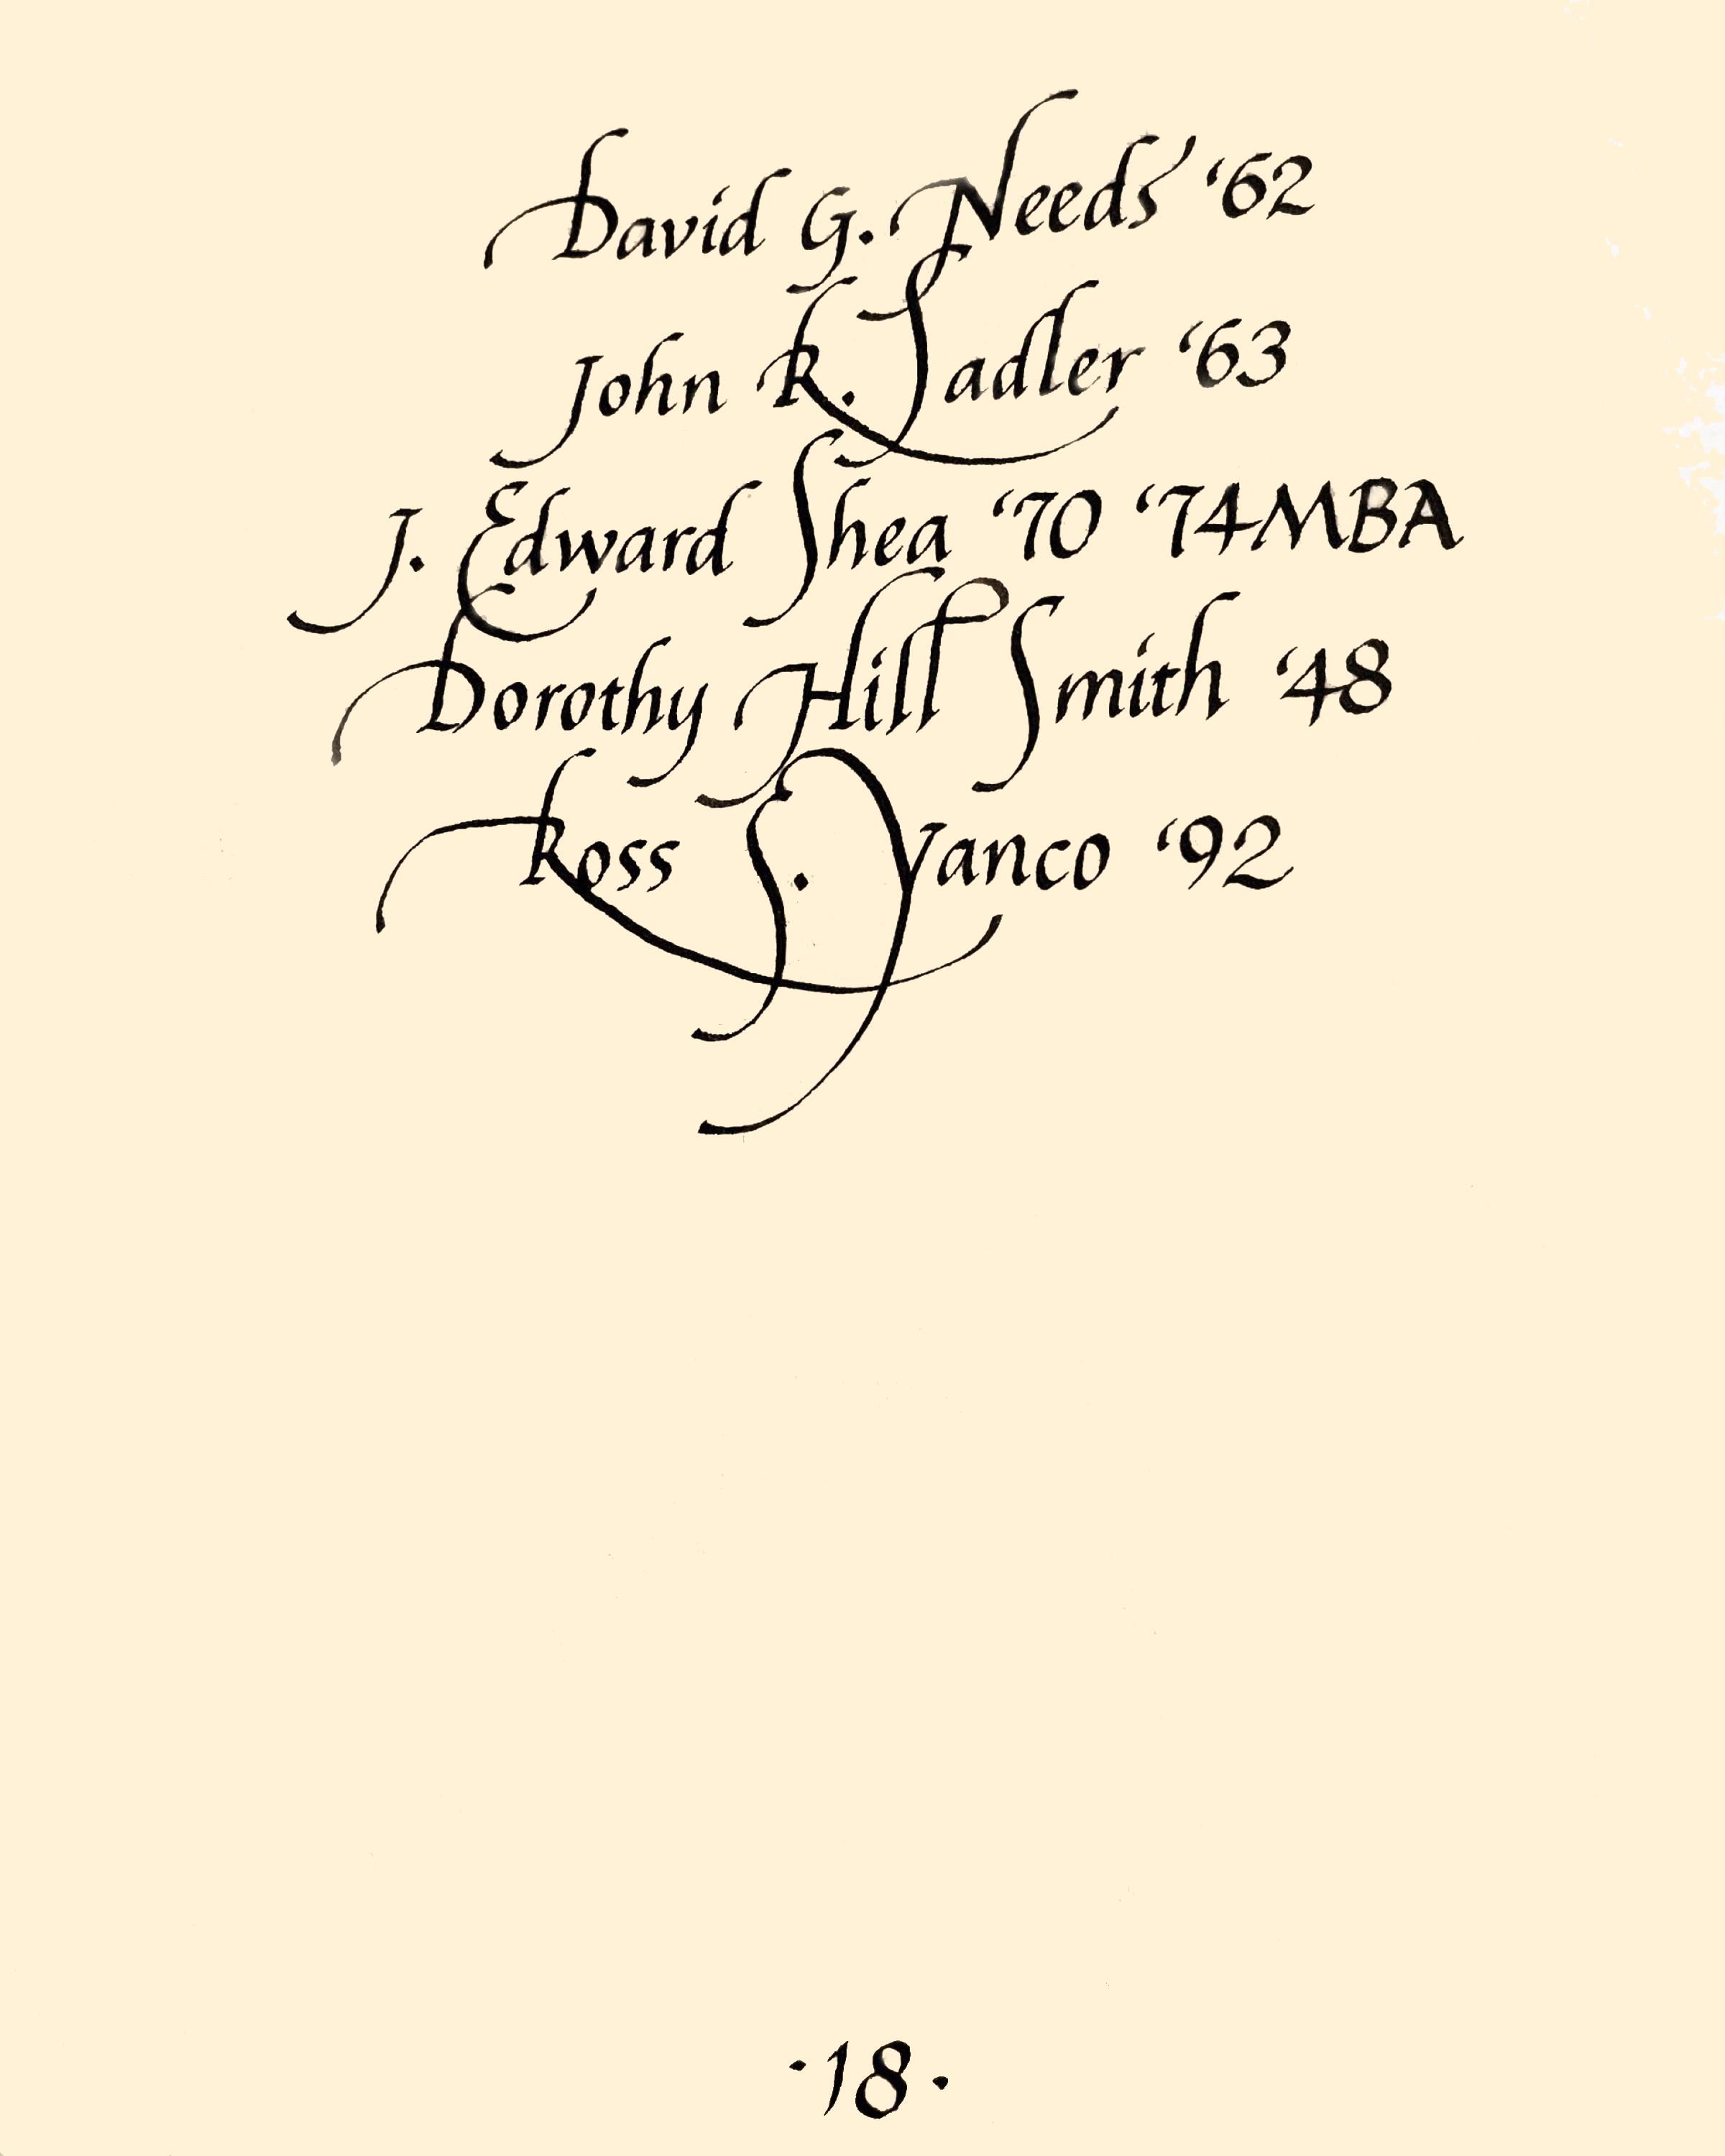 David G. Needs '62
John R. Sadler '63
J. Edward Shea '70 '74MBA
Dorothy Hill Smith '48
Ross S. Yanco '92
·18·